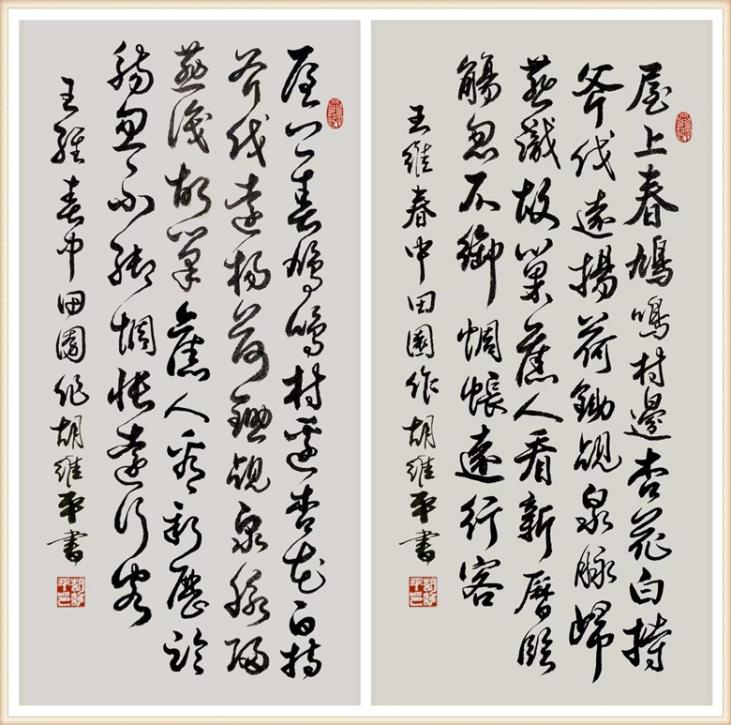 屋上春鳩鳴村邊杏花白持
斧伐遠揚荷鋤覘泉脉歸
燕識故巢舊人看新曆臨
觴忽不御惆悵遠行客
王維春中田園作胡維平書
屋上春鳩鳴村邊杏花白持
斧伐遠楊荷鋤覘泉脉歸
燕識故巢舊人看新曆臨
觴忽不御惆悵遠行客
王維春中田園作胡維平書